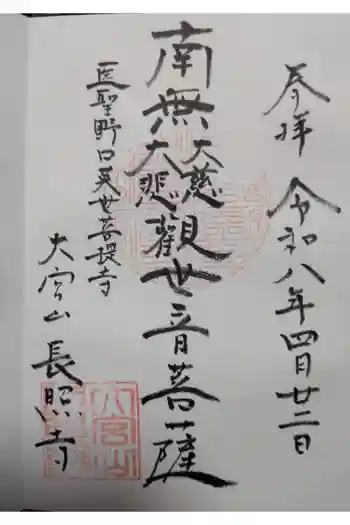 奉拝 令和八年四月廿二日
南無大慈大悲觀世音菩薩
医聖野口英世菩提寺
大宮山 長照寺